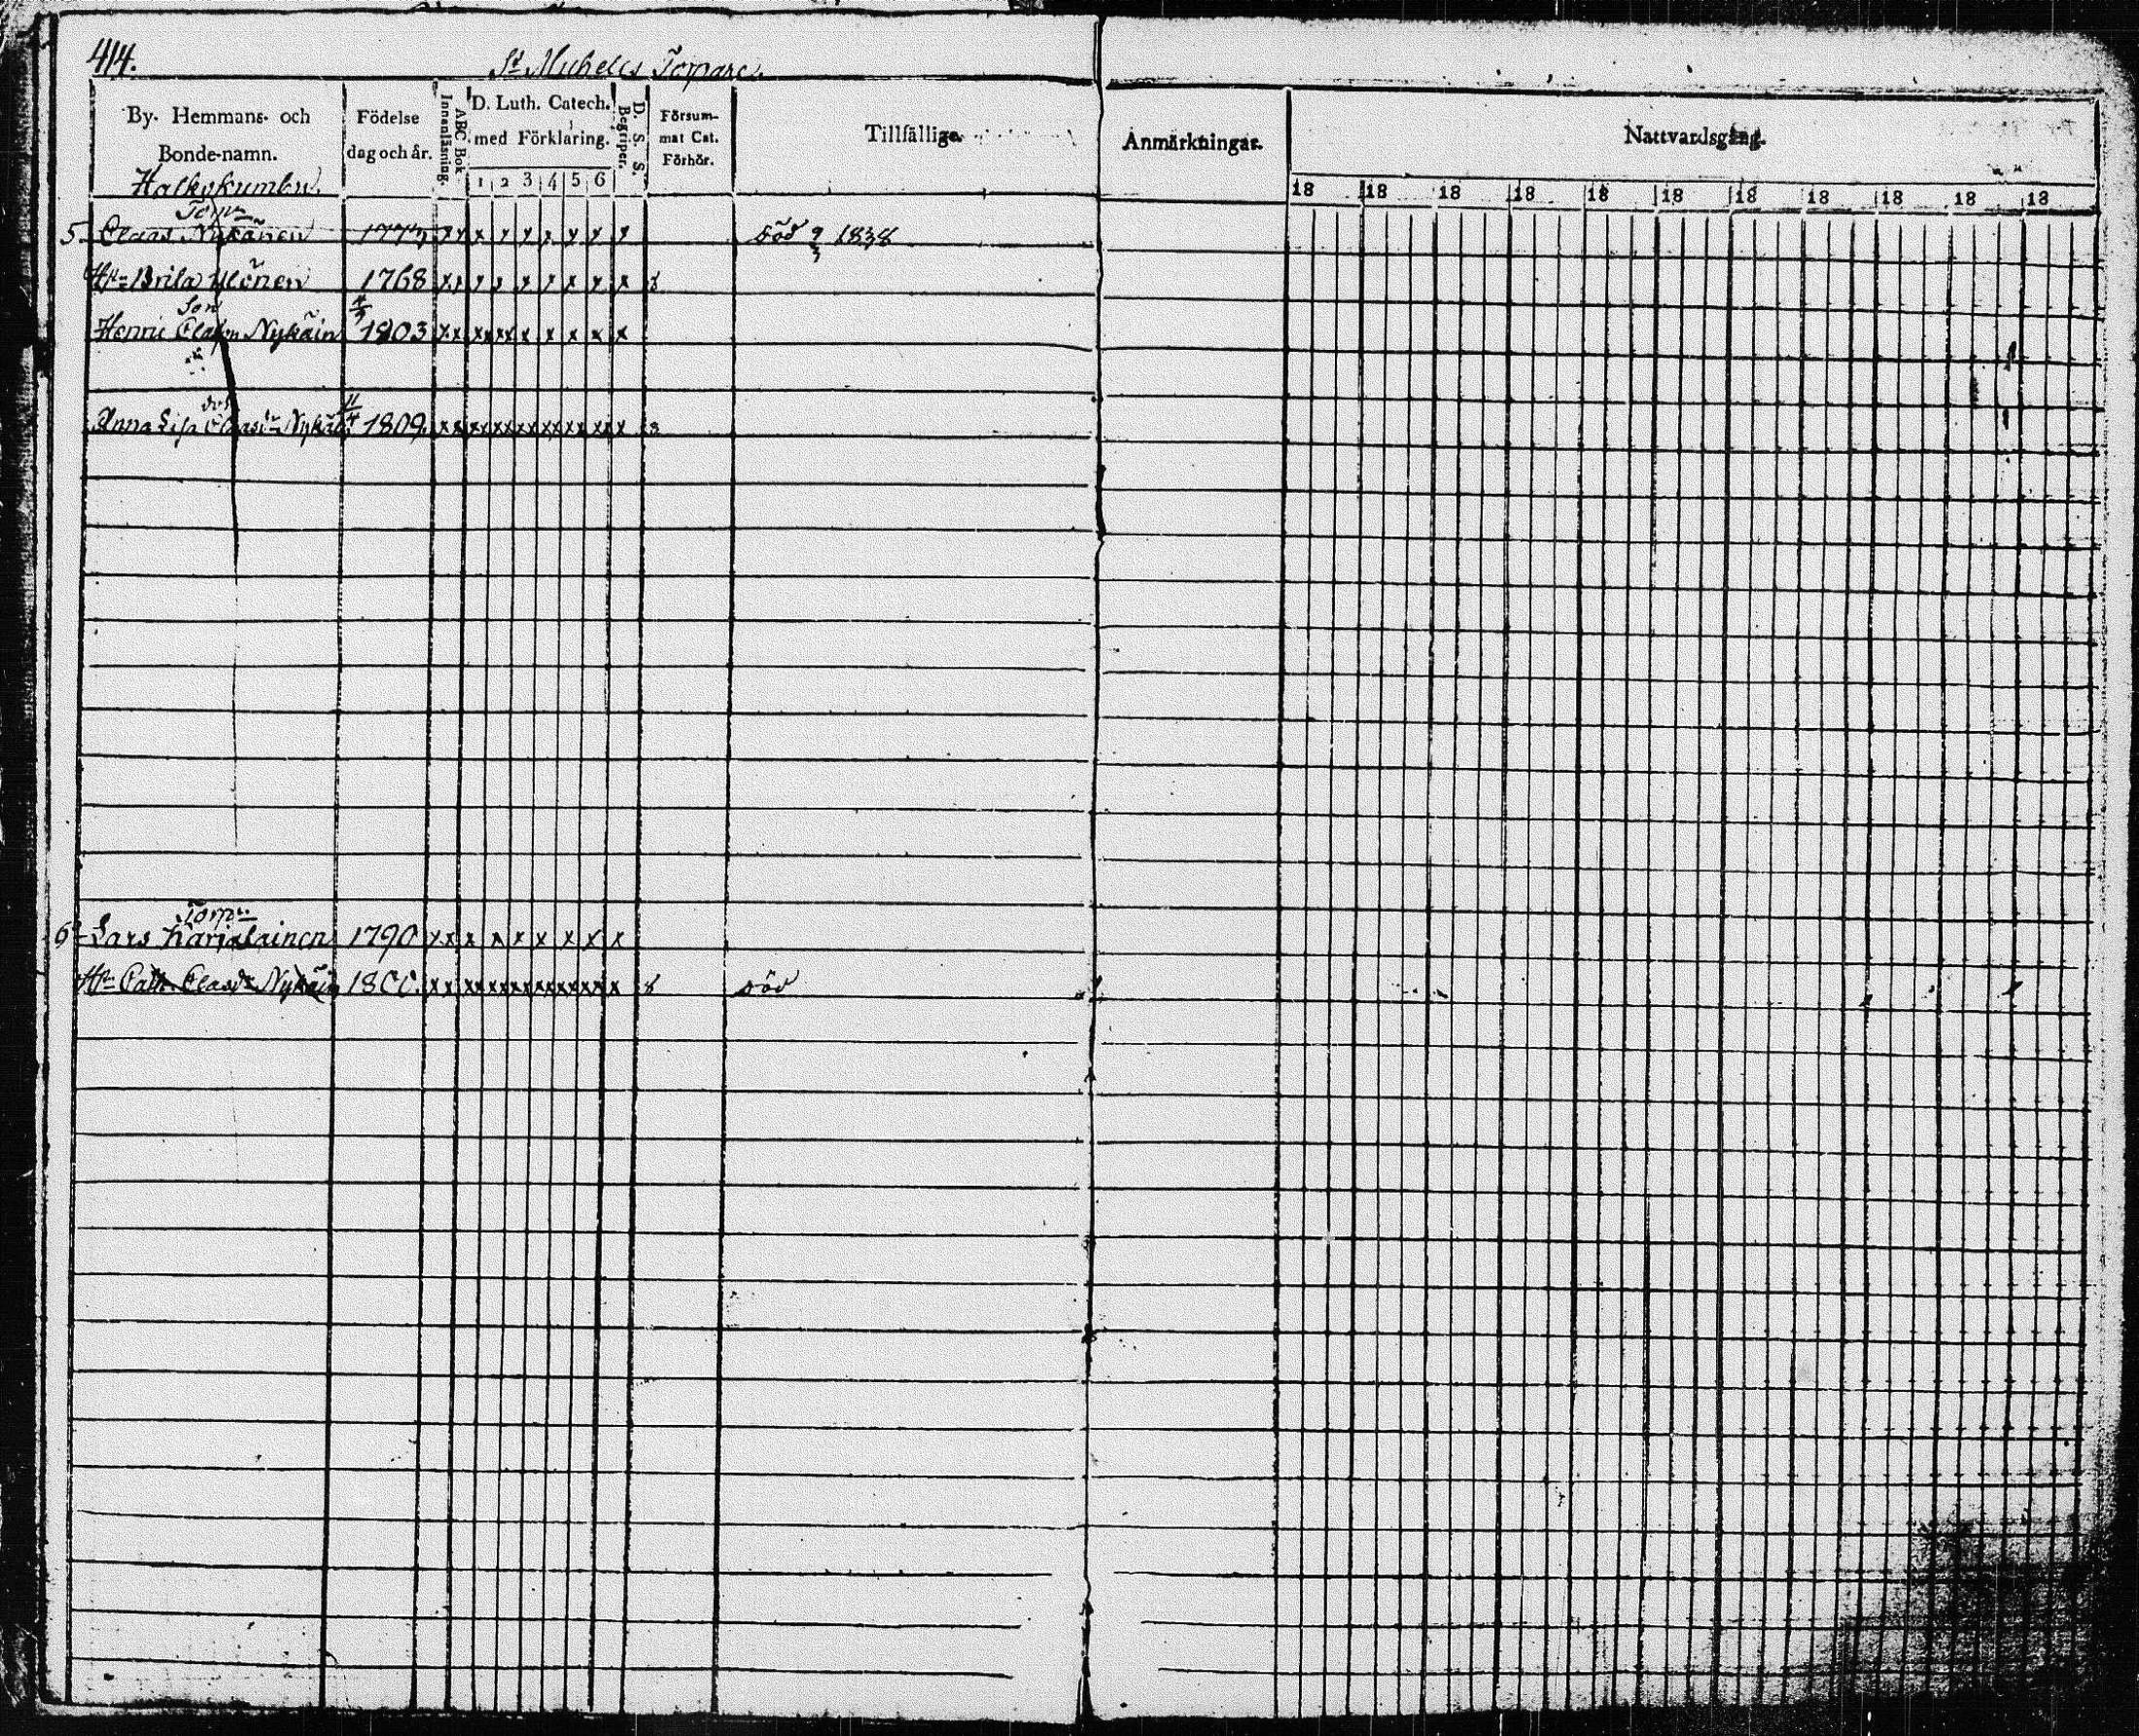 414.
St Michells Torpare.
By- Hemmans- och
Bonde-namn.
Födelse
dag och år.
Innanläsning.
ABC Bok
D. Luth. Catech.
med Förklaring.
1 2 3 4 5 6
Begriper.
D. S. S.
Försum-
mat Cat.
Förhör.
Tillfällige.
Anmärkningar.
Nattvardsgång.
18 18 18 18 18 18 18 18 18 18 18
Torp
5 Claas Nykänen x x x x x x x x x död 9/3 1838
Hu Brita Ylönen 1768 x x x x x x x x x
Son
Henric Nykäin 1803 x x x x x x x x x x x
Anna Lisa Nykäi 11/4 1809
Torp
6 Lars Karjalainen 1790 x x x x x x x x x
Hu Cath. Clasdr Nykäin död